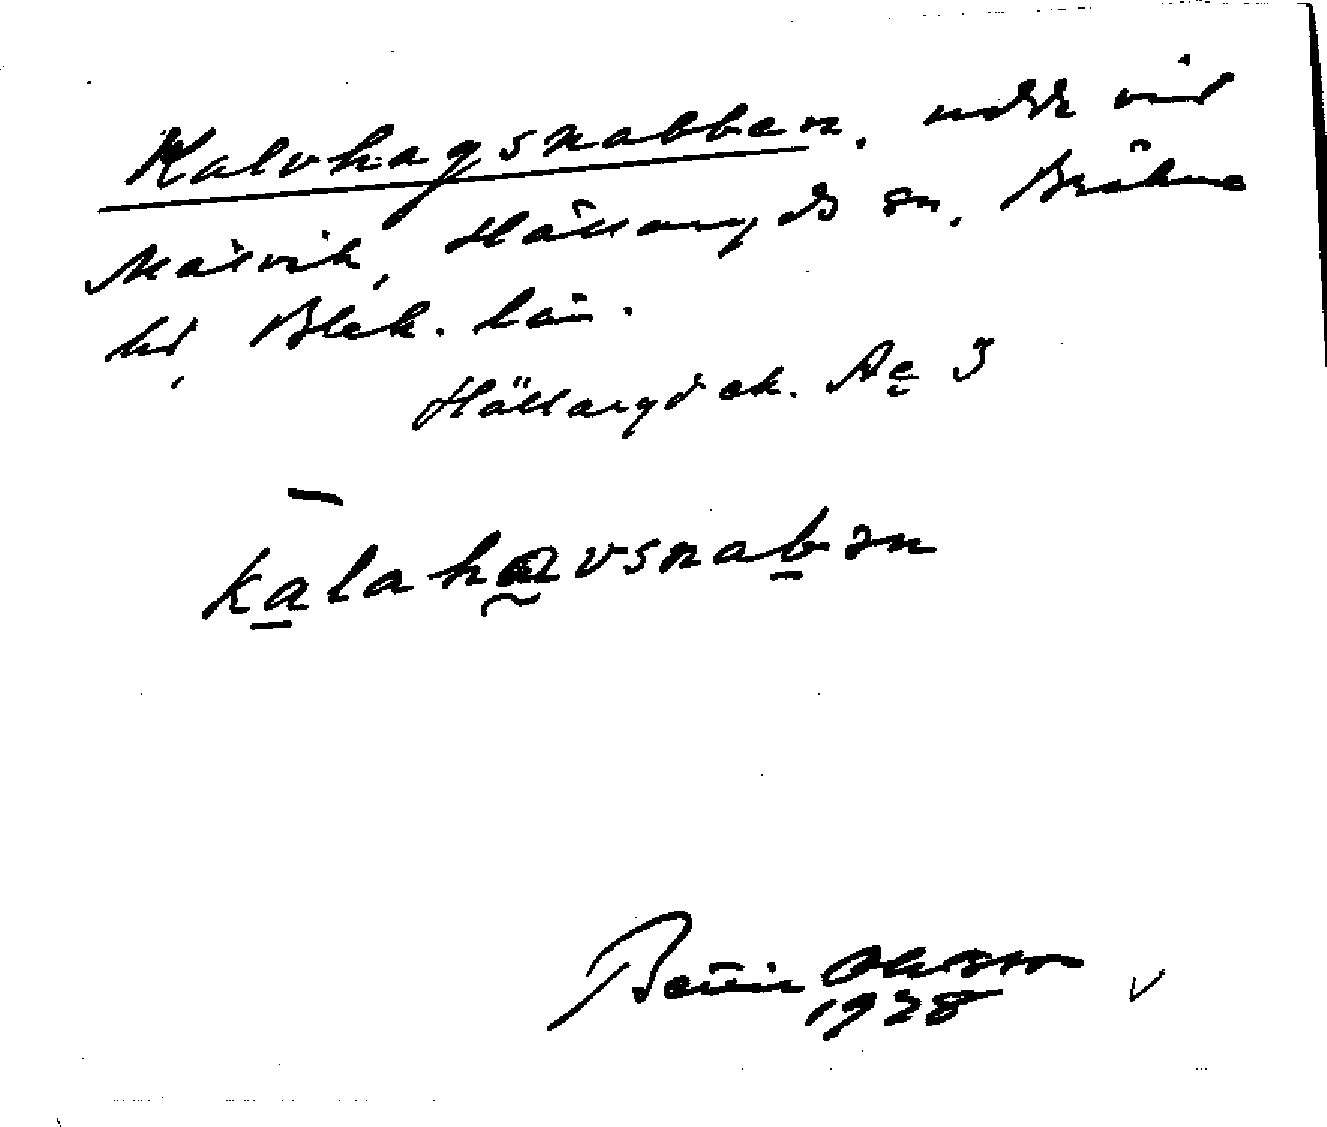 Kalvhagsnabben, udde vid
Matvik, Hällaryds sn, Bräkne
hd, Blek. län.
Hällaryd ek. Ae 3
kalahavsnabən
Bertil Ohlsson
1928